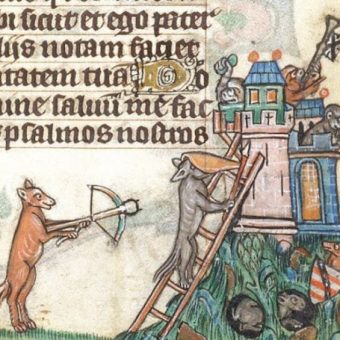 bi sicut et ego pater
lijs notam faciet
ritatem tuā
mine saluū me fac
psalmos nostros